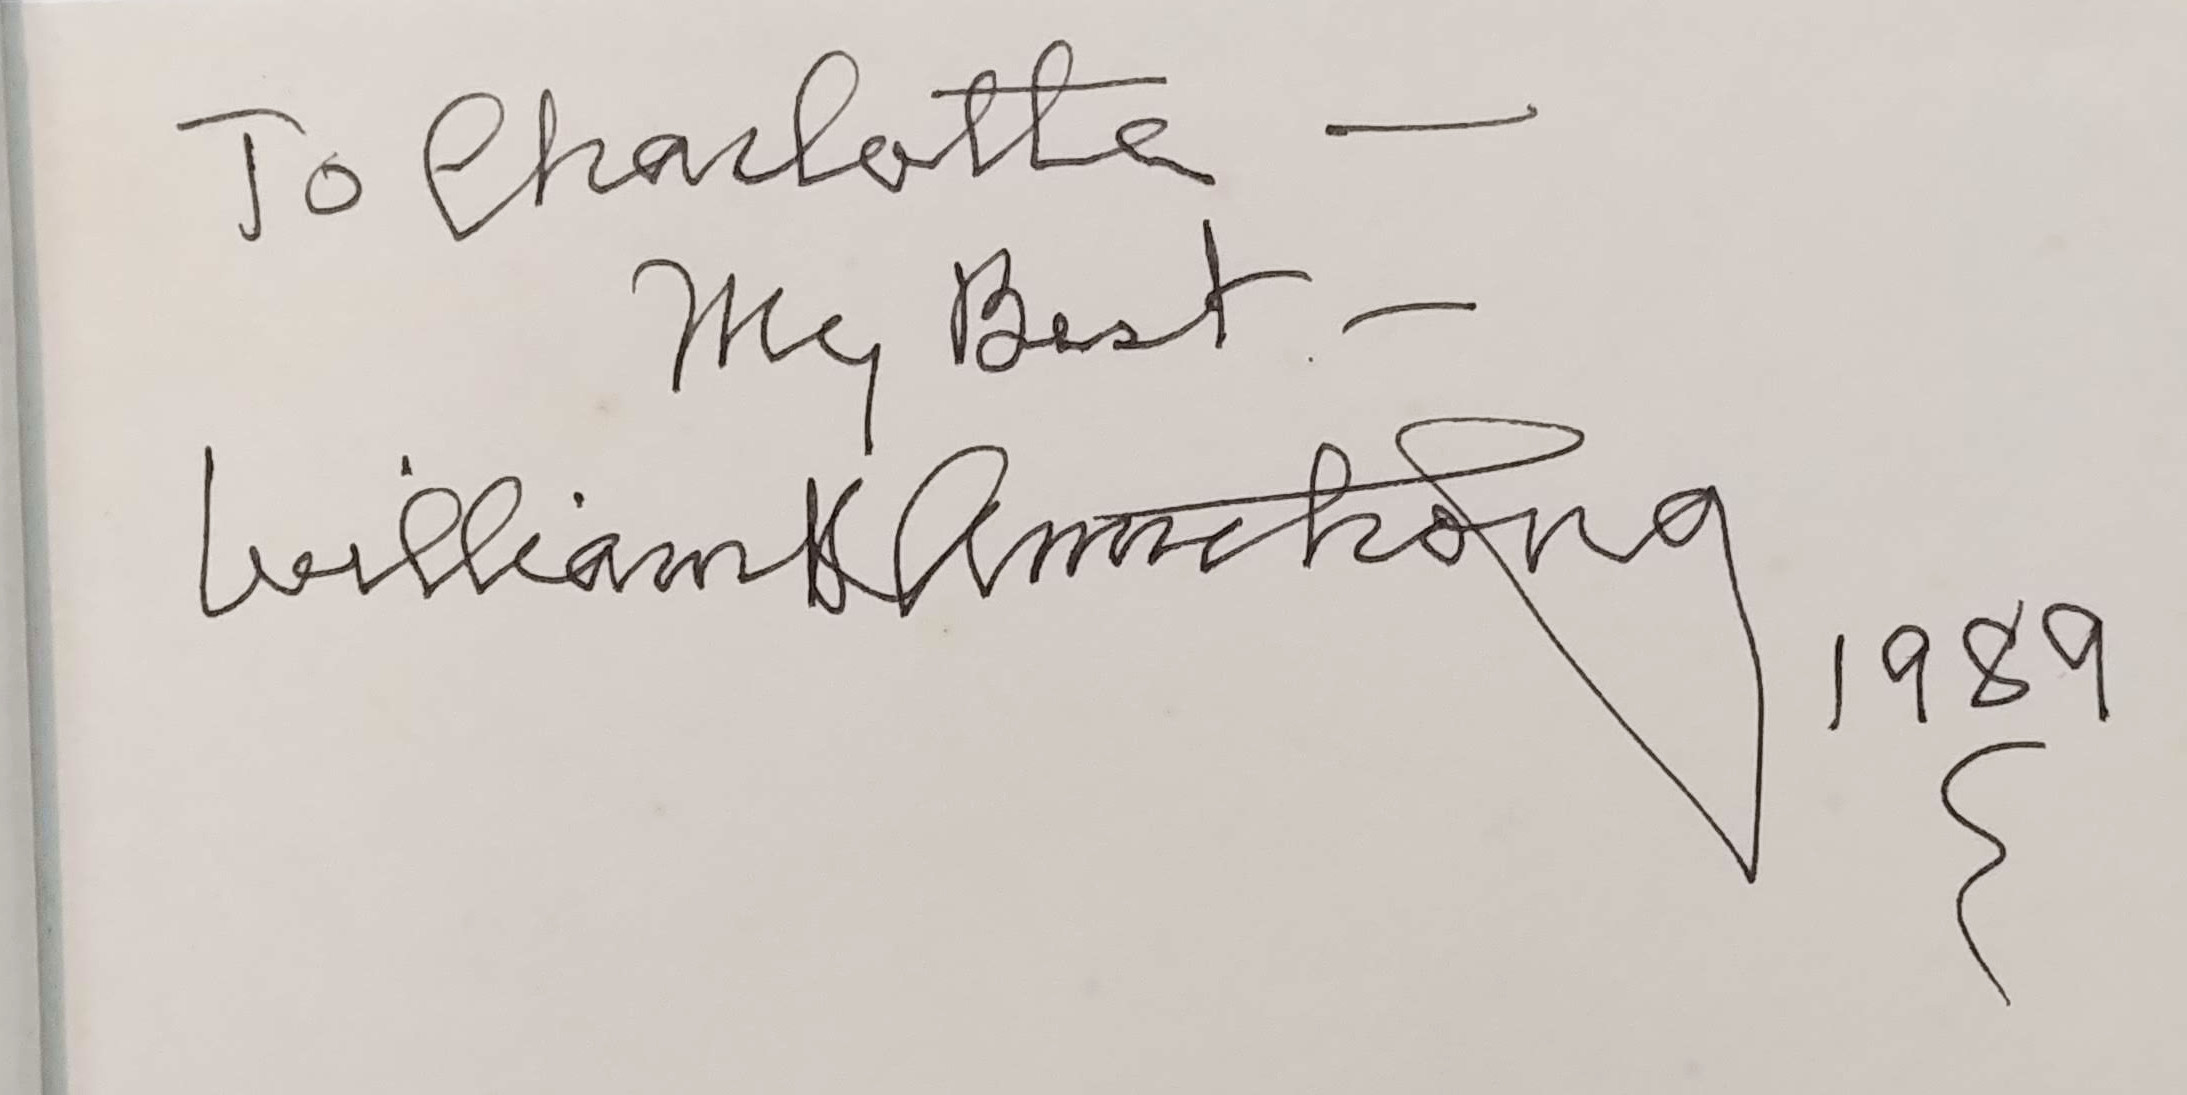 To Charlotte —
My Best —
William H Armstrong
1989